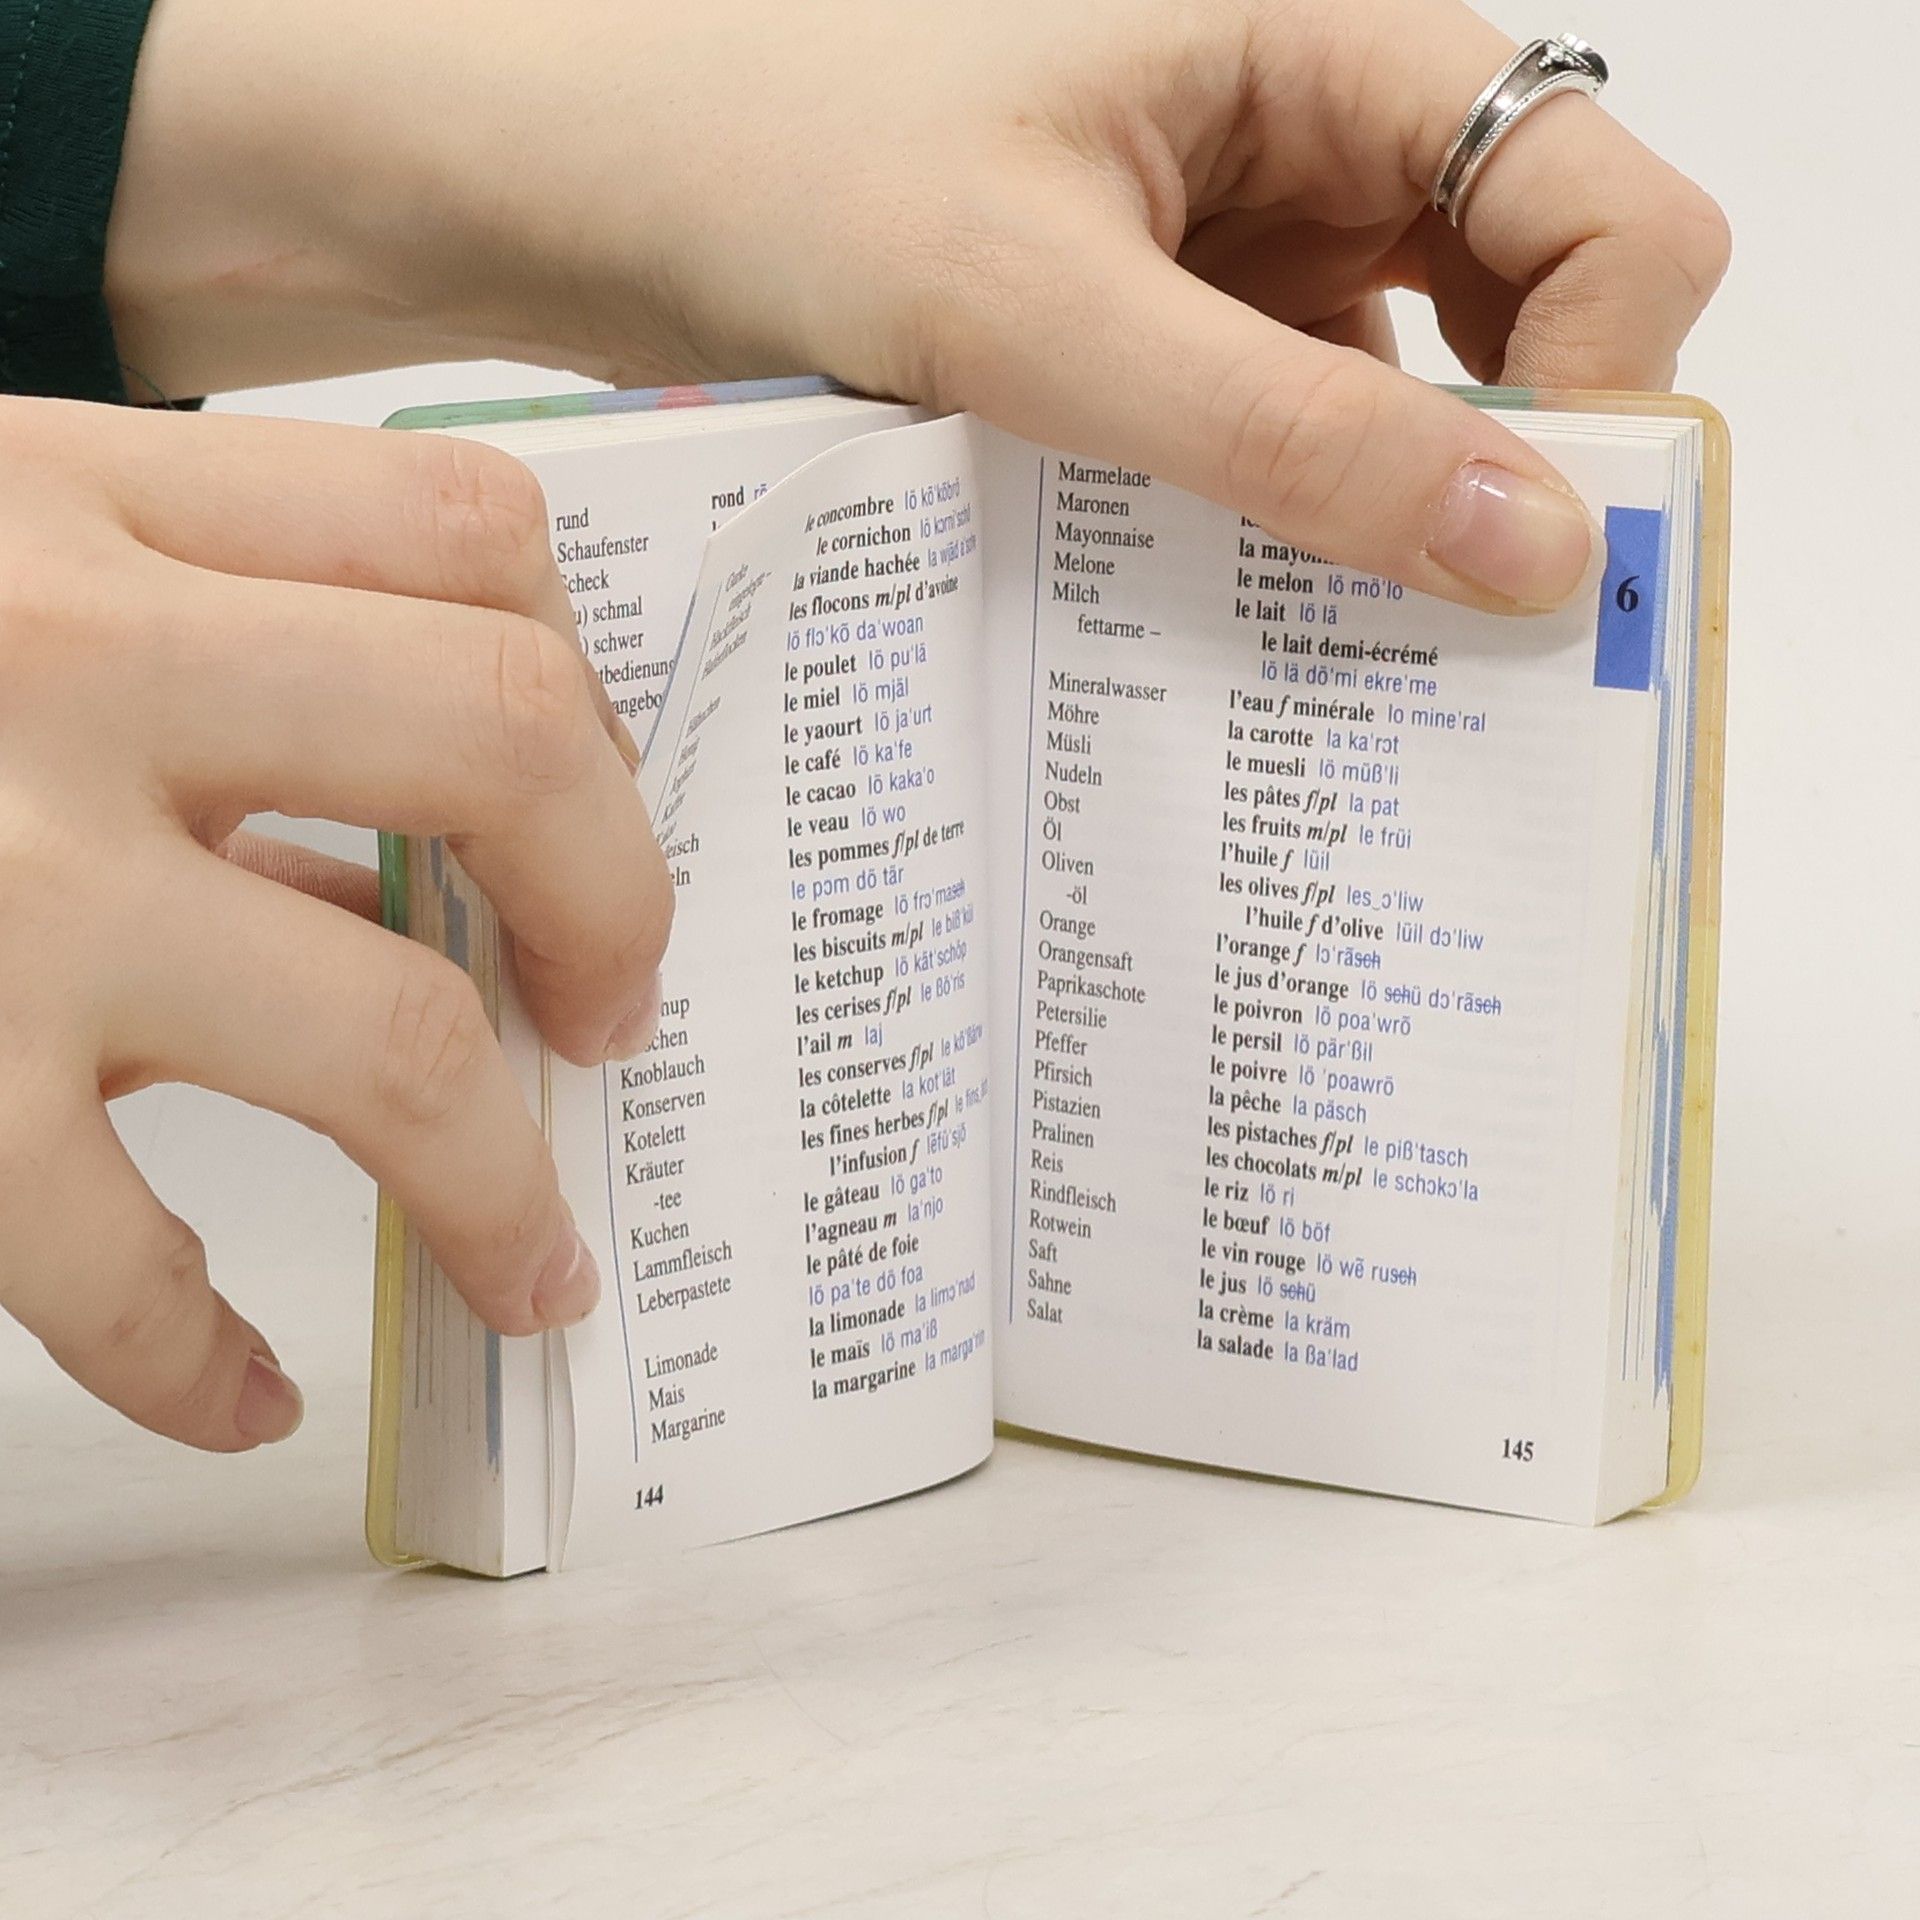 rund
Schaufenster
schmal
schwer
rond
le concombre lö kõ'kõbrö
le cornichon
la viande hachée
les flocons m/pl d'avoine
lö flɔ'kõ da'woan
le poulet lö pu'lä
le miel lö mjäl
le yaourt lö ja'urt
le café lö ka'fe
le cacao lö kaka'o
le veau lö wo
les pommes f/pl de terre
le pɔm dö tär
le fromage lö frɔ'masch
les biscuits m/pl le biß'küi
le ketchup lö kät'schöp
les cerises f/pl le ßö'ris
Knoblauch l'ail m laj
Konserven les conserves f/pl
Kotelett la côtelette la kot'lät
Kräuter les fines herbes f/pl
-tee l'infusion f lẽfü'sjõ
Kuchen le gâteau lö ga'to
Lammfleisch l'agneau m la'njo
Leberpastete le pâté de foie
lö pa'te dö foa
Limonade la limonade la limɔ'nad
Mais le maïs lö ma'iß
Margarine la margarine la marga'rin
144
Marmelade
Maronen
Mayonnaise
Melone le melon lö mö'lõ
Milch le lait lö lä
fettarme – le lait demi-écrémé
lö lä dö'mi ekre'me
Mineralwasser l'eau f minérale lo mine'ral
Möhre la carotte la ka'rɔt
Müsli le muesli lö müß'li
Nudeln les pâtes f/pl la pat
Obst les fruits m/pl le früi
Öl l'huile f lüil
Oliven les olives f/pl les‿ɔ'liw
-öl l'huile f d'olive lüil dɔ'liw
Orange l'orange f lɔ'rãsch
Orangensaft le jus d'orange lö schü dɔ'rãsch
Paprikaschote le poivron lö poa'wrõ
Petersilie le persil lö pär'ßil
Pfeffer le poivre lö 'poawrö
Pfirsich la pêche la päsch
Pistazien les pistaches f/pl le piß'tasch
Pralinen les chocolats m/pl le schɔkɔ'la
Reis le riz lö ri
Rindfleisch le bœuf lö böf
Rotwein le vin rouge lö wẽ rusch
Saft le jus lö schü
Sahne la crème la kräm
Salat la salade la ßa'lad
6
145